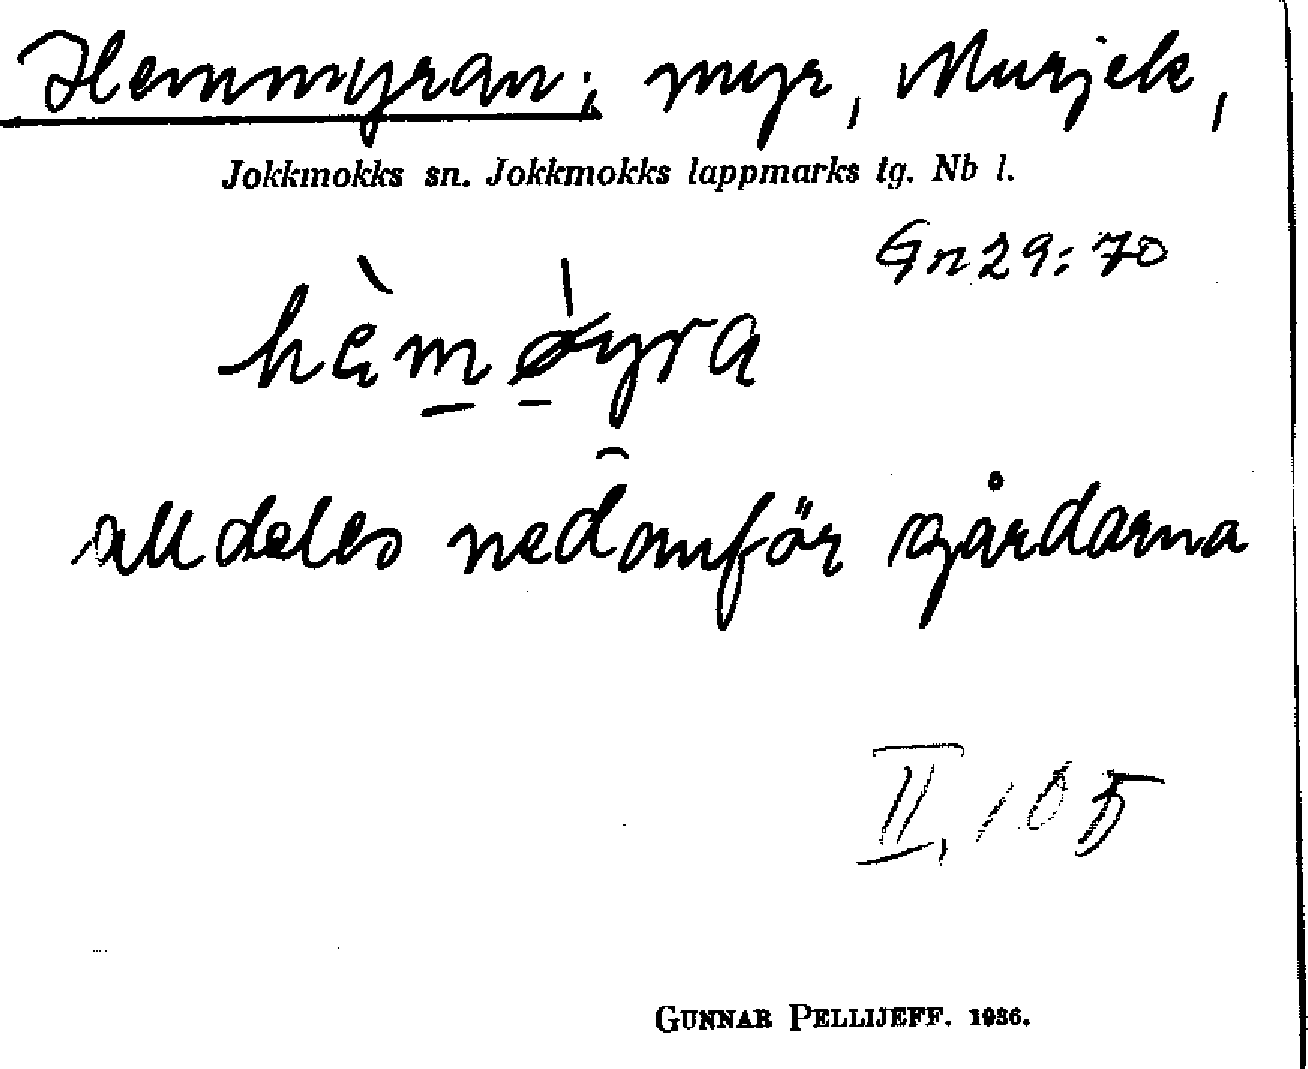 Hemmyran; myr, Murjek,
Jokkmokks sn. Jokkmokks lappmarks tg. Nb l.
Gn 29:70
alldeles nedanför gårdarna
II, 105
GUNNAR PELLIJEFF. 1936.